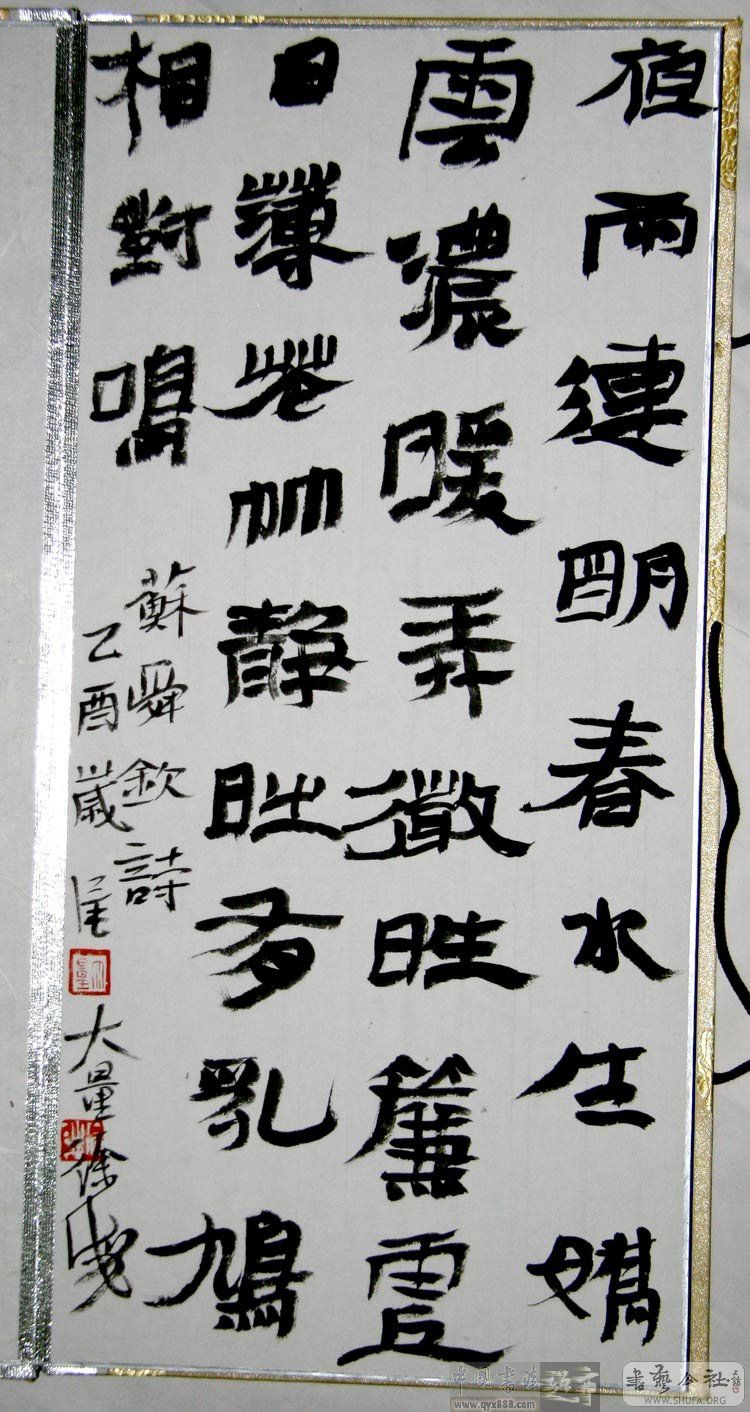 夜雨連明春水生嬌
雲濃暖弄微晴簾虛
日薄花竹靜時有乳鳩
相對鳴
蘇舜欽詩
乙酉歲尾
大量徐
中国书法
www.qyx888.com
书艺公社
WWW.SHUFA.ORG